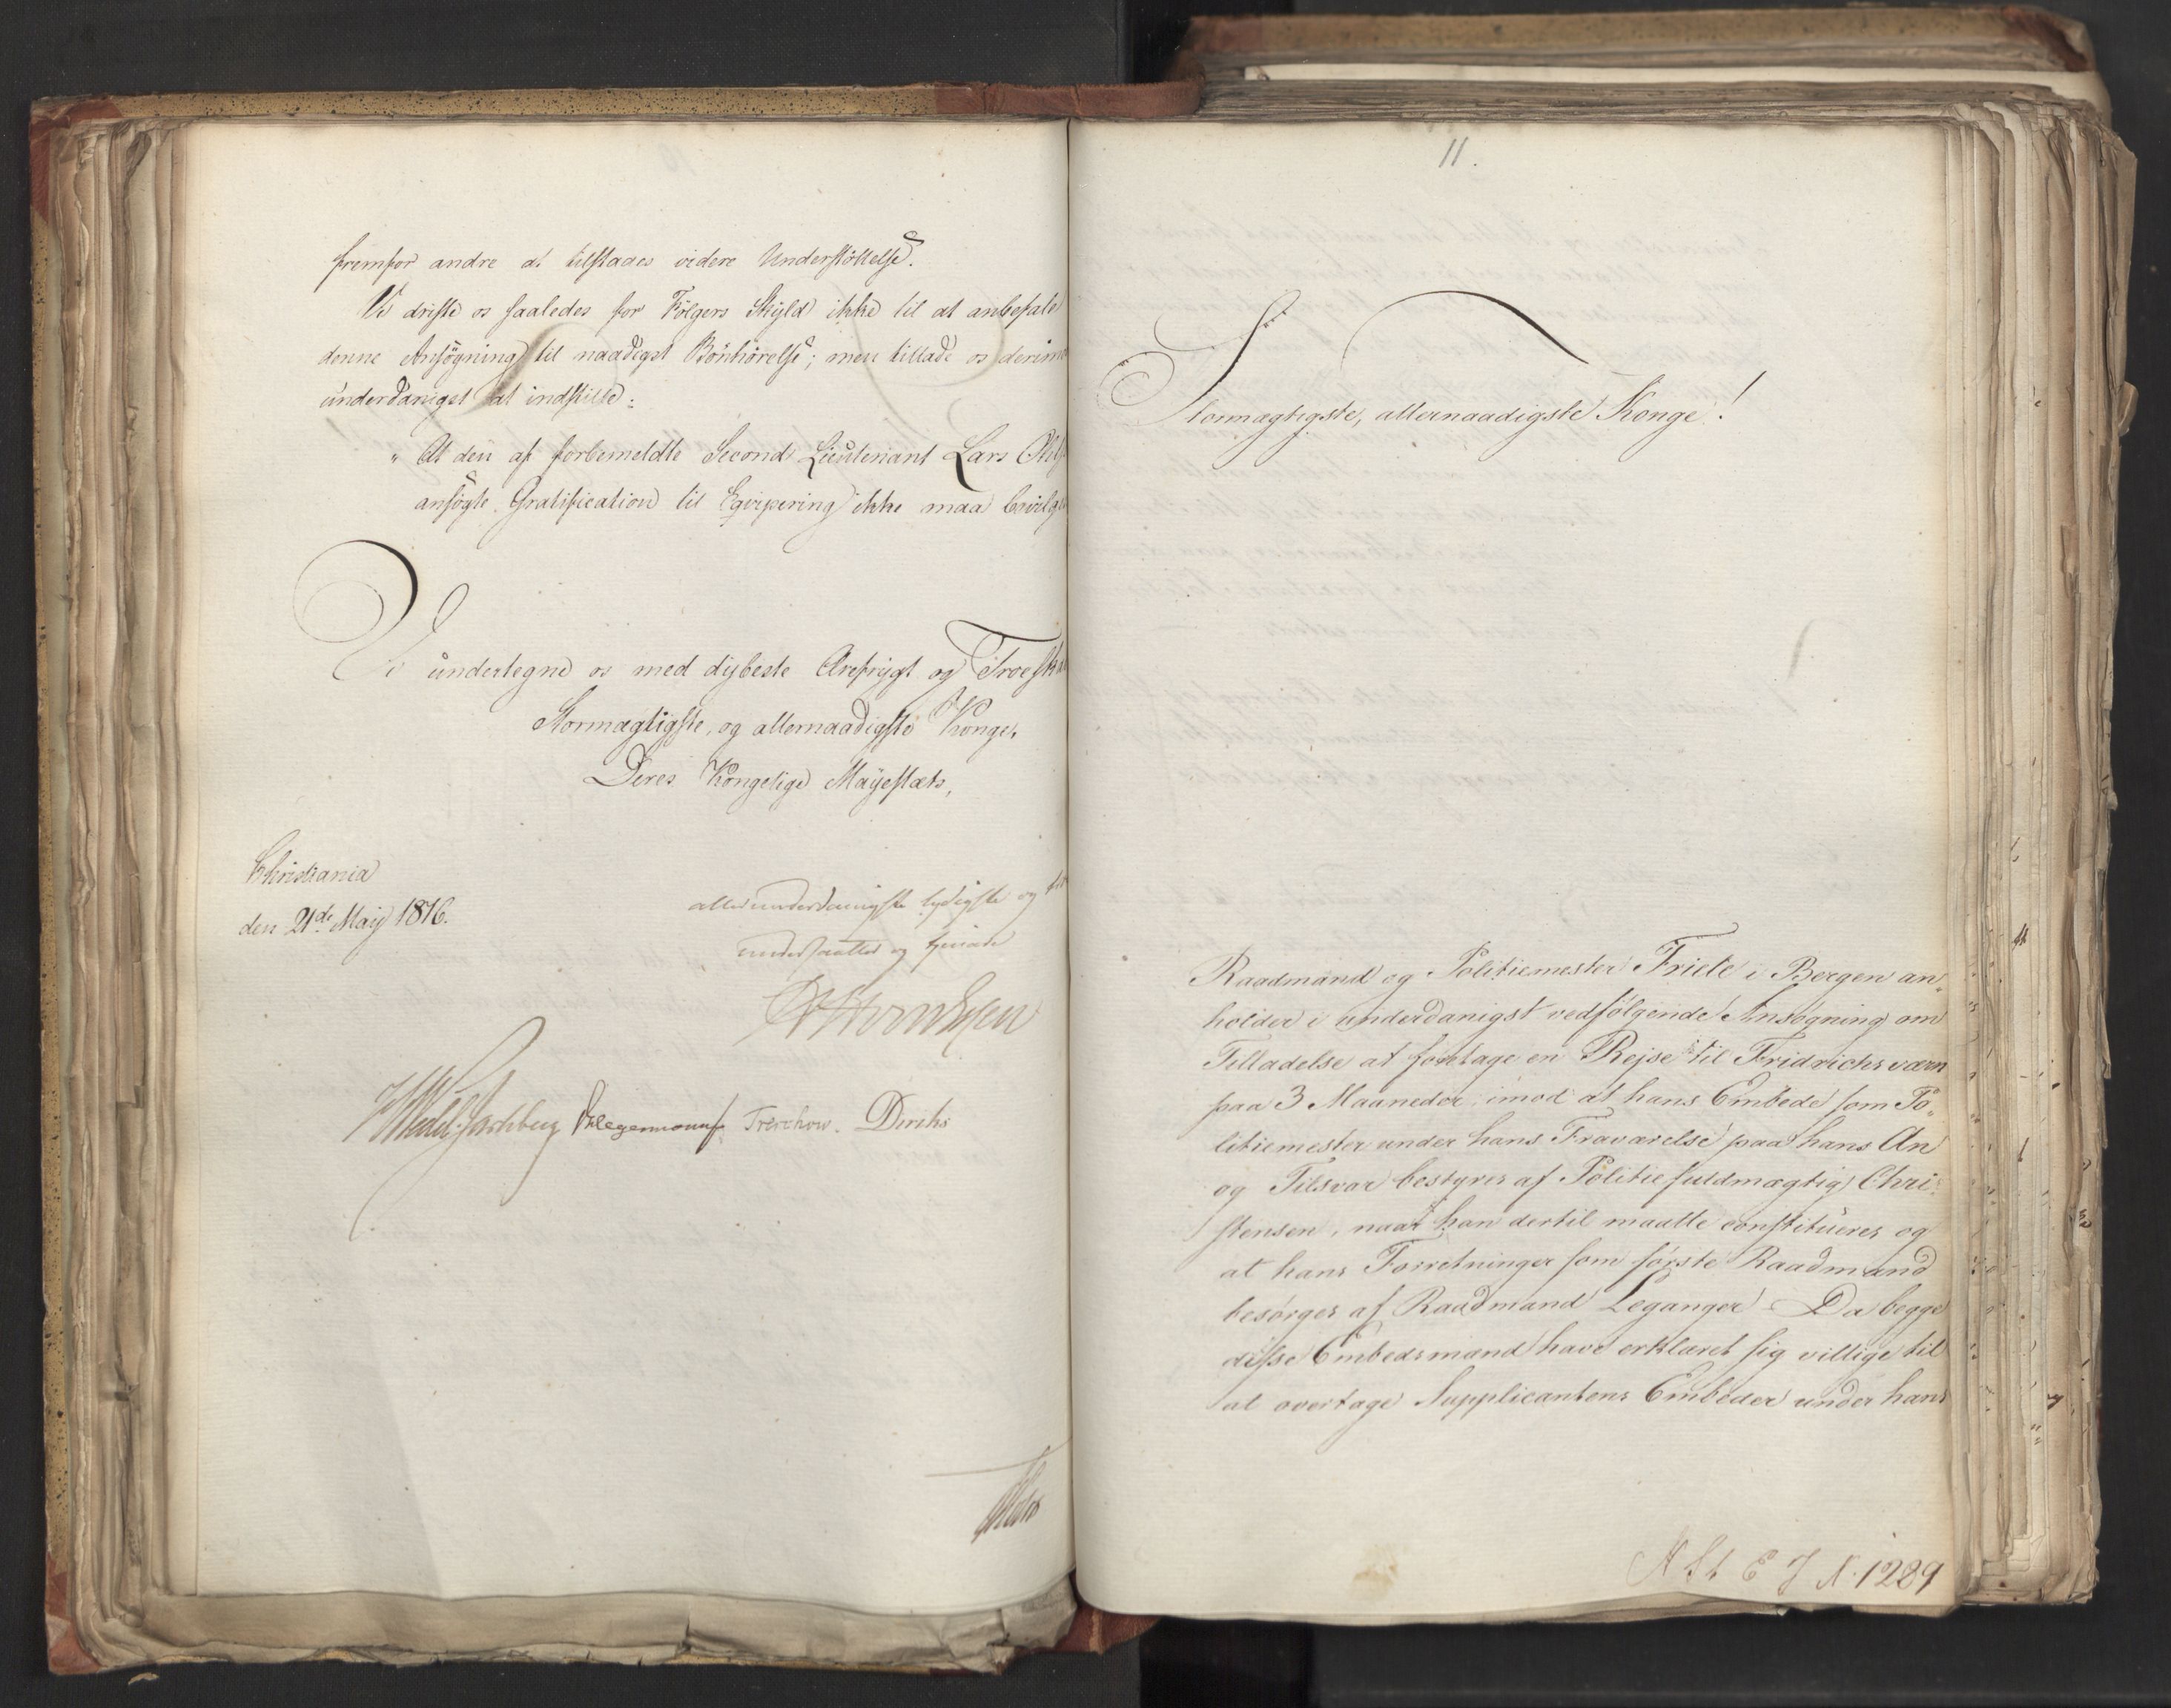 fremfor andre at tilstaaes videre Understöttelse.
Vi driste os saaledes for Fölgers Skyld ikke til at anbefale
denne Ansögning til naadigst Bönhörelse; men tillade os derimo
underdanigst at indstille:
" At den af forbemeldte Second Lieutenant Lars
ansögte Gratification til Eqvipering ikke maa bevilges
Vi undertegne os med dybeste Ærefrygt og Troeska
Stormægtigste, og allernaadigste Konge,
Deres Kongelige Mayestæts,
Christiania
den 21de May 1816.
allerunderdanigste lydigste og
undersaatter og tjenere
Wedel-Jarlsberg Treschow. Diriks
11.
Stormægtigste, allernaadigste Konge!
Raadmand og Politiemester Friele i Bergen an„
holder i underdanigst vedfölgende Ansøgning om
Tilladelse at foretage en Rejse til Fridrichsværn
paa 3 Maaneder, imod at hans Embede som Po„
litiemester under hans Fraværelse paa hans An
og Tilsvar bestyres af Politiefuldmægtig Chri„
stensen, naar han dertil maatte constitueres og
at hans Forretninger som förste Raadmand
besörges af Raadmand Leganger. Da begge
disse Embedsmænd have erklæret sig villige til
at overtage Supplicantens Embeder under hans
N St E J N. 1289